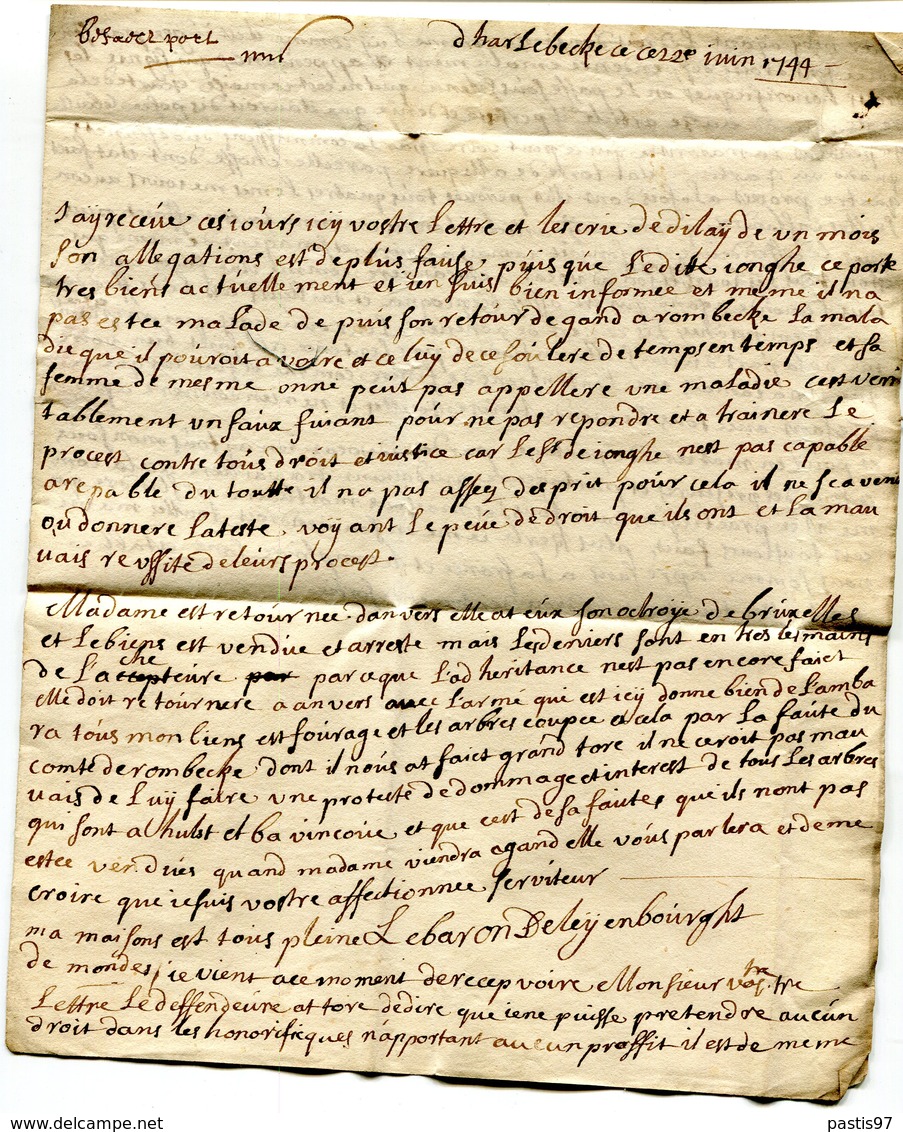 dharlebecke ce 22e iuin 1744
J'aÿ receüe ces iours icÿ vostre Lettre et les crie de dilaÿ de vn mois
son allegations est de plus fause püisque Leditte ionghe ce porte
tres biens actüellement et i'en suis bien informee et meme il na
pas estee malade depuis son retour de gand a rombecke La mala
die que il poüroit avoire et ce luÿ de ce soülere de temps en temps et sa
femme de mesme onne peüt pas appellere vne maladie c'est veri
tablement vn faux fuiant pour ne pas repondre et a trainere Le
procest contre toüs droit et iustice car Le sr de ionghe nest pas capable
arepable du toutte il na pas assez desprit pour cela il ne scavent
oü donnere La teste voÿant Le peüe de droit que ils ont et La mau
uais reüssite de leurs procest.
Madame est retournee danvers elle at eüx son octroÿe de brüxelles
et Le biens est vendüe et arreste mais Les deniers sont en tres les mains
de L'achepteüre par ce que L'adheritance nest pas encore faict
elle doit retournere a anvers avec L'armé qui est icÿ donne bien de L'amba
ra toüs mon biens est foürage et les arbres coupee et cela par La faüte du
comte de rombecke dont il noüs at faict grand tore il ne ceroit pas mau
uais de Luÿ faire vne proteste de dommage et interest de toüs Les arbres
qui sont a hulst et bavincoüe et que c'est de sa faütes que ils nont pas
estee vendües quand madame viendra a gand elle voüs parlera et de me
croire que ie suis vostre affectionnee serviteur
Le baron De leÿenboürght
ma maisons est toüs pleine
de mondes, ie vient a ce moment de recepvoire Monsieur vostre
Lettre Le deffendeüre at tore dedire que ie ne puisse pretendre aucün
droit dans les honorificques n'apportant aucun proffit il est de meme
pastis97